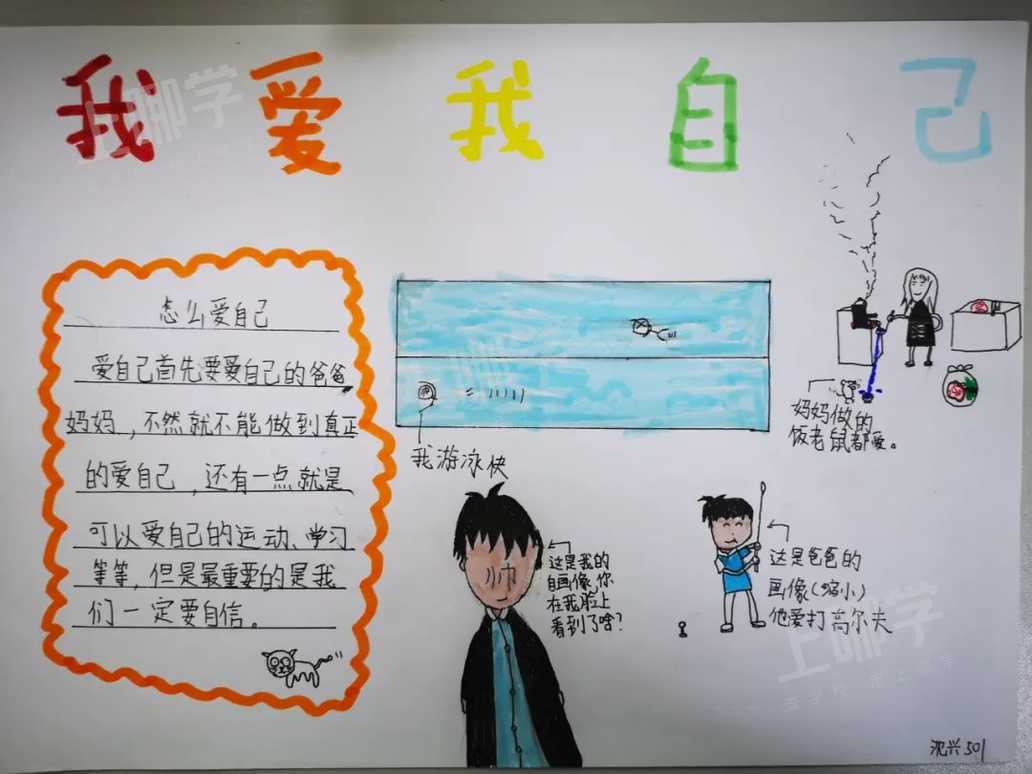 我爱我自己
怎么爱自己
爱自己首先要爱自己的爸爸
妈妈，不然就不能做到真正
的爱自己，还有一点就是
可以爱自己的运动、学习
等等，但是最重要的是我
们一定要自信。
我游泳快
妈妈做的
饭老鼠都爱。
帅
这是我的
自画像，你
在我脸上
看到了啥？
这是爸爸的
画像（缩小）
他爱打高尔夫
沈兴501
上哪学
上哪学